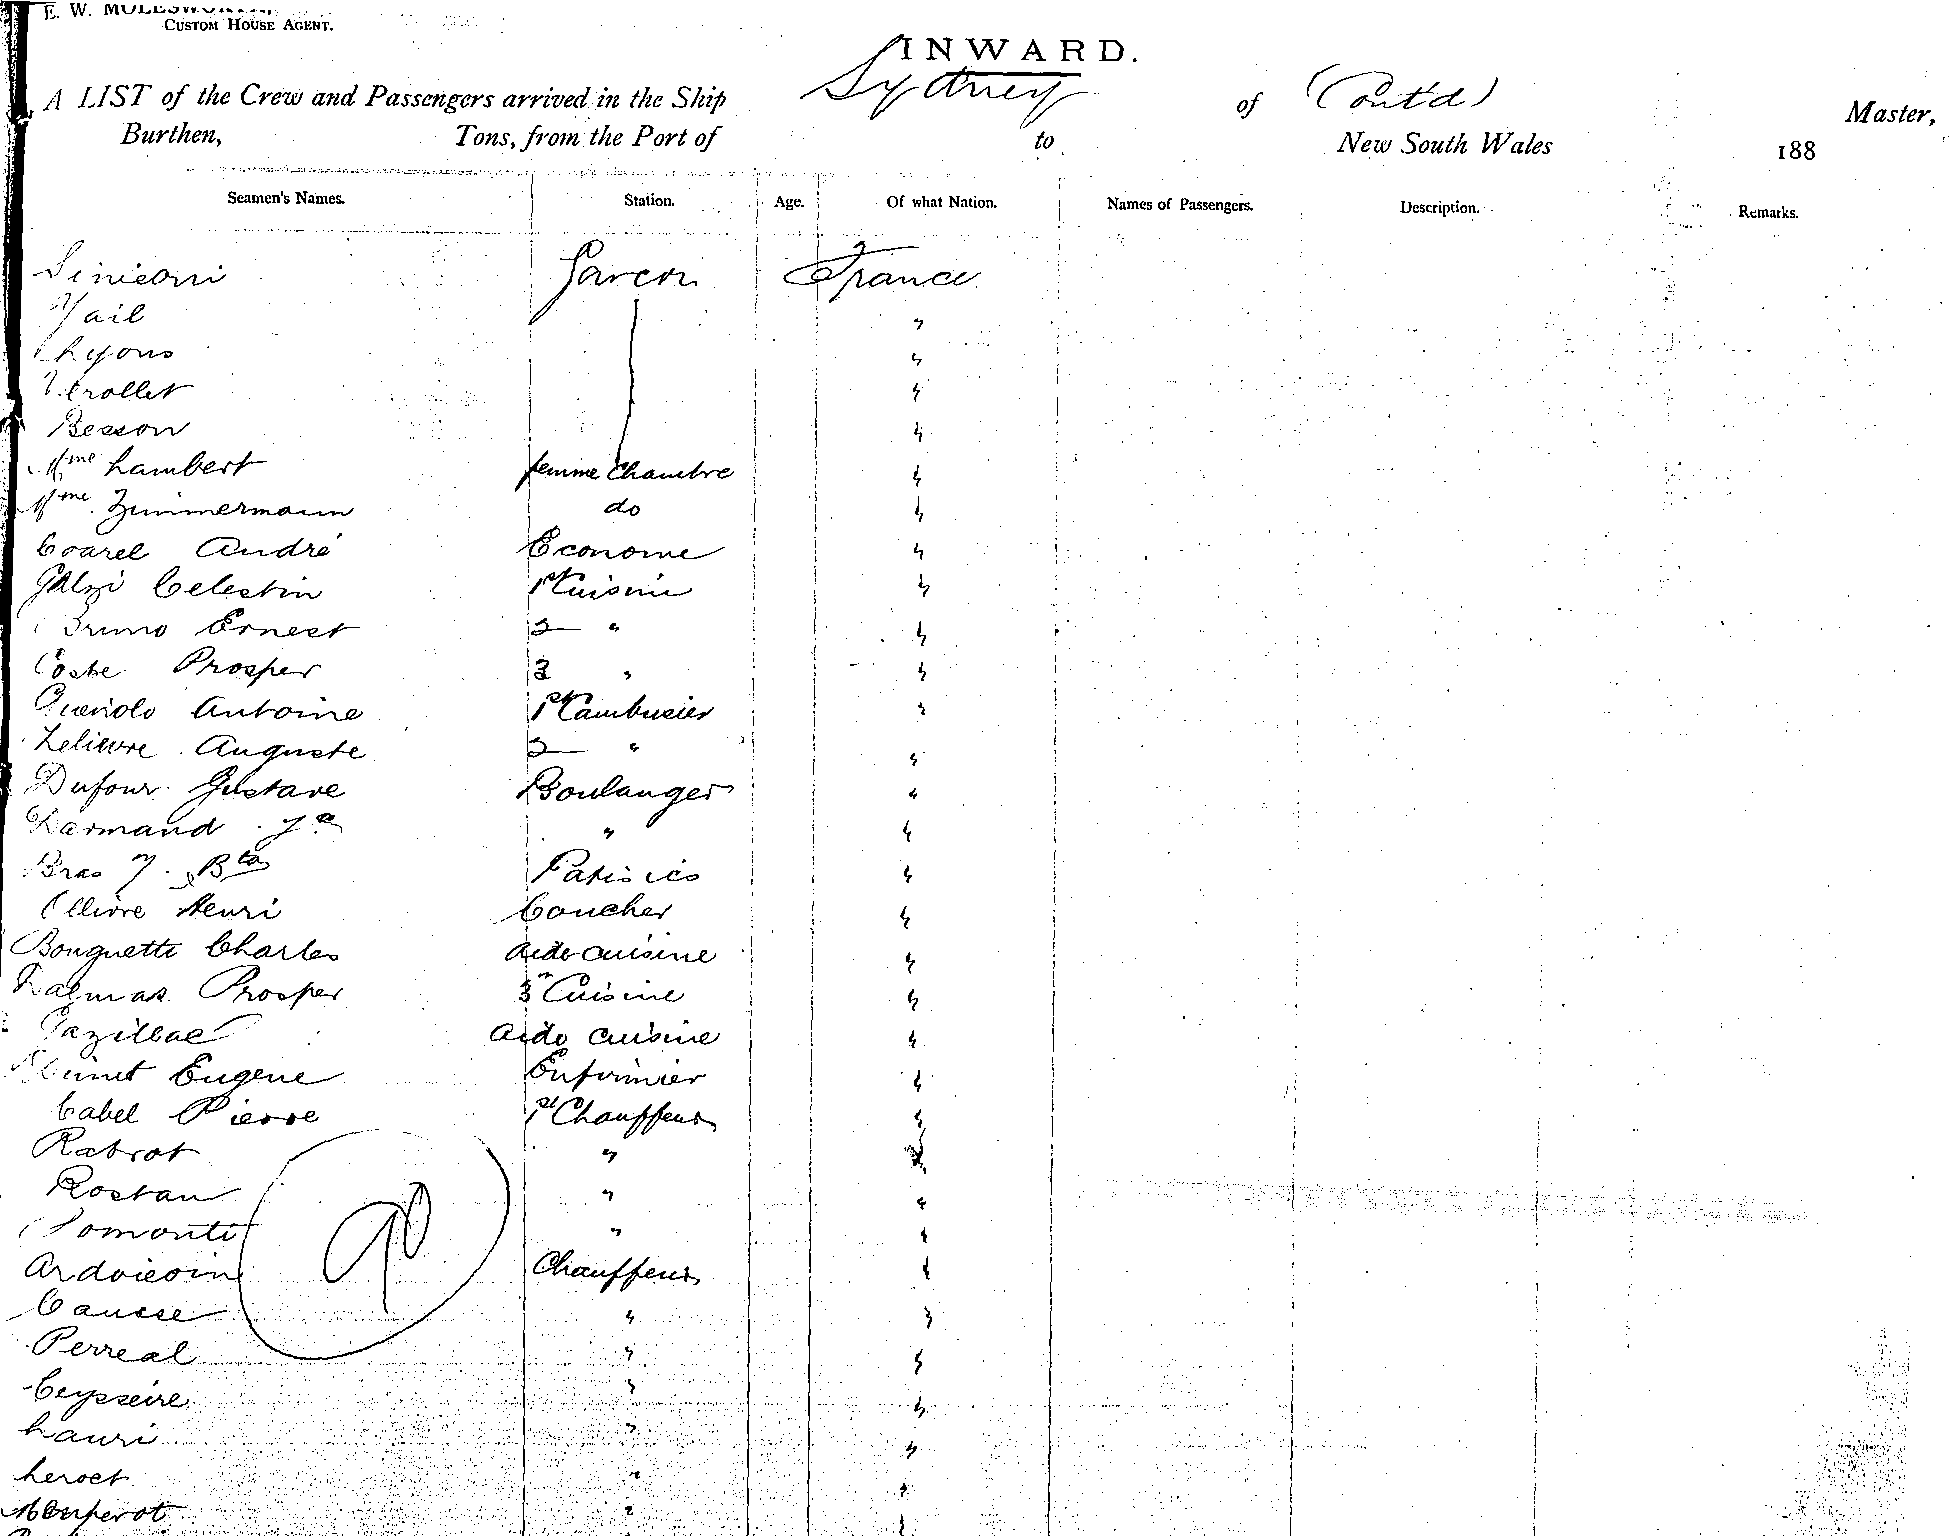 E. W. MOLESWORTH,
CUSTOM HOUSE AGENT.
INWARD.
A LIST of the Crew and Passengers arrived in the Ship Sydney of (Contd) Master,
Burthen, Tons, from the Port of to New South Wales 188
Seamen's Names. Station. Age. Of what Nation. Names of Passengers. Description. Remarks.
Garcon France
Vail "
Lyons "
Verollet "
Besson "
Mme Lambert femme Chambre "
Mme Zimmermann do "
Coarel André Econome "
Celestin 1st Cuisini "
Bruno Ernest 2 " "
Coste Prosper 3 " "
Antoine 1st Cambusier "
Lelievre Auguste 2 " "
Dufour Gustave Boulanger "
Darmand " "
Bras J. Bte "
Ollivre Henri Boucher "
Bouquette Charles Aide cuisine "
Dalmas Prosper 3 Cuisine "
Aide cuisine "
Eugene Enfirmier "
Cabel Pierre 1st Chauffeur "
Rabrot " "
Rostan " "
" "
Ardoicoin Chauffeur "
Causse " "
Perreal " "
Ceysseire " "
Lauri " "
Leroet " "
Monperot " "